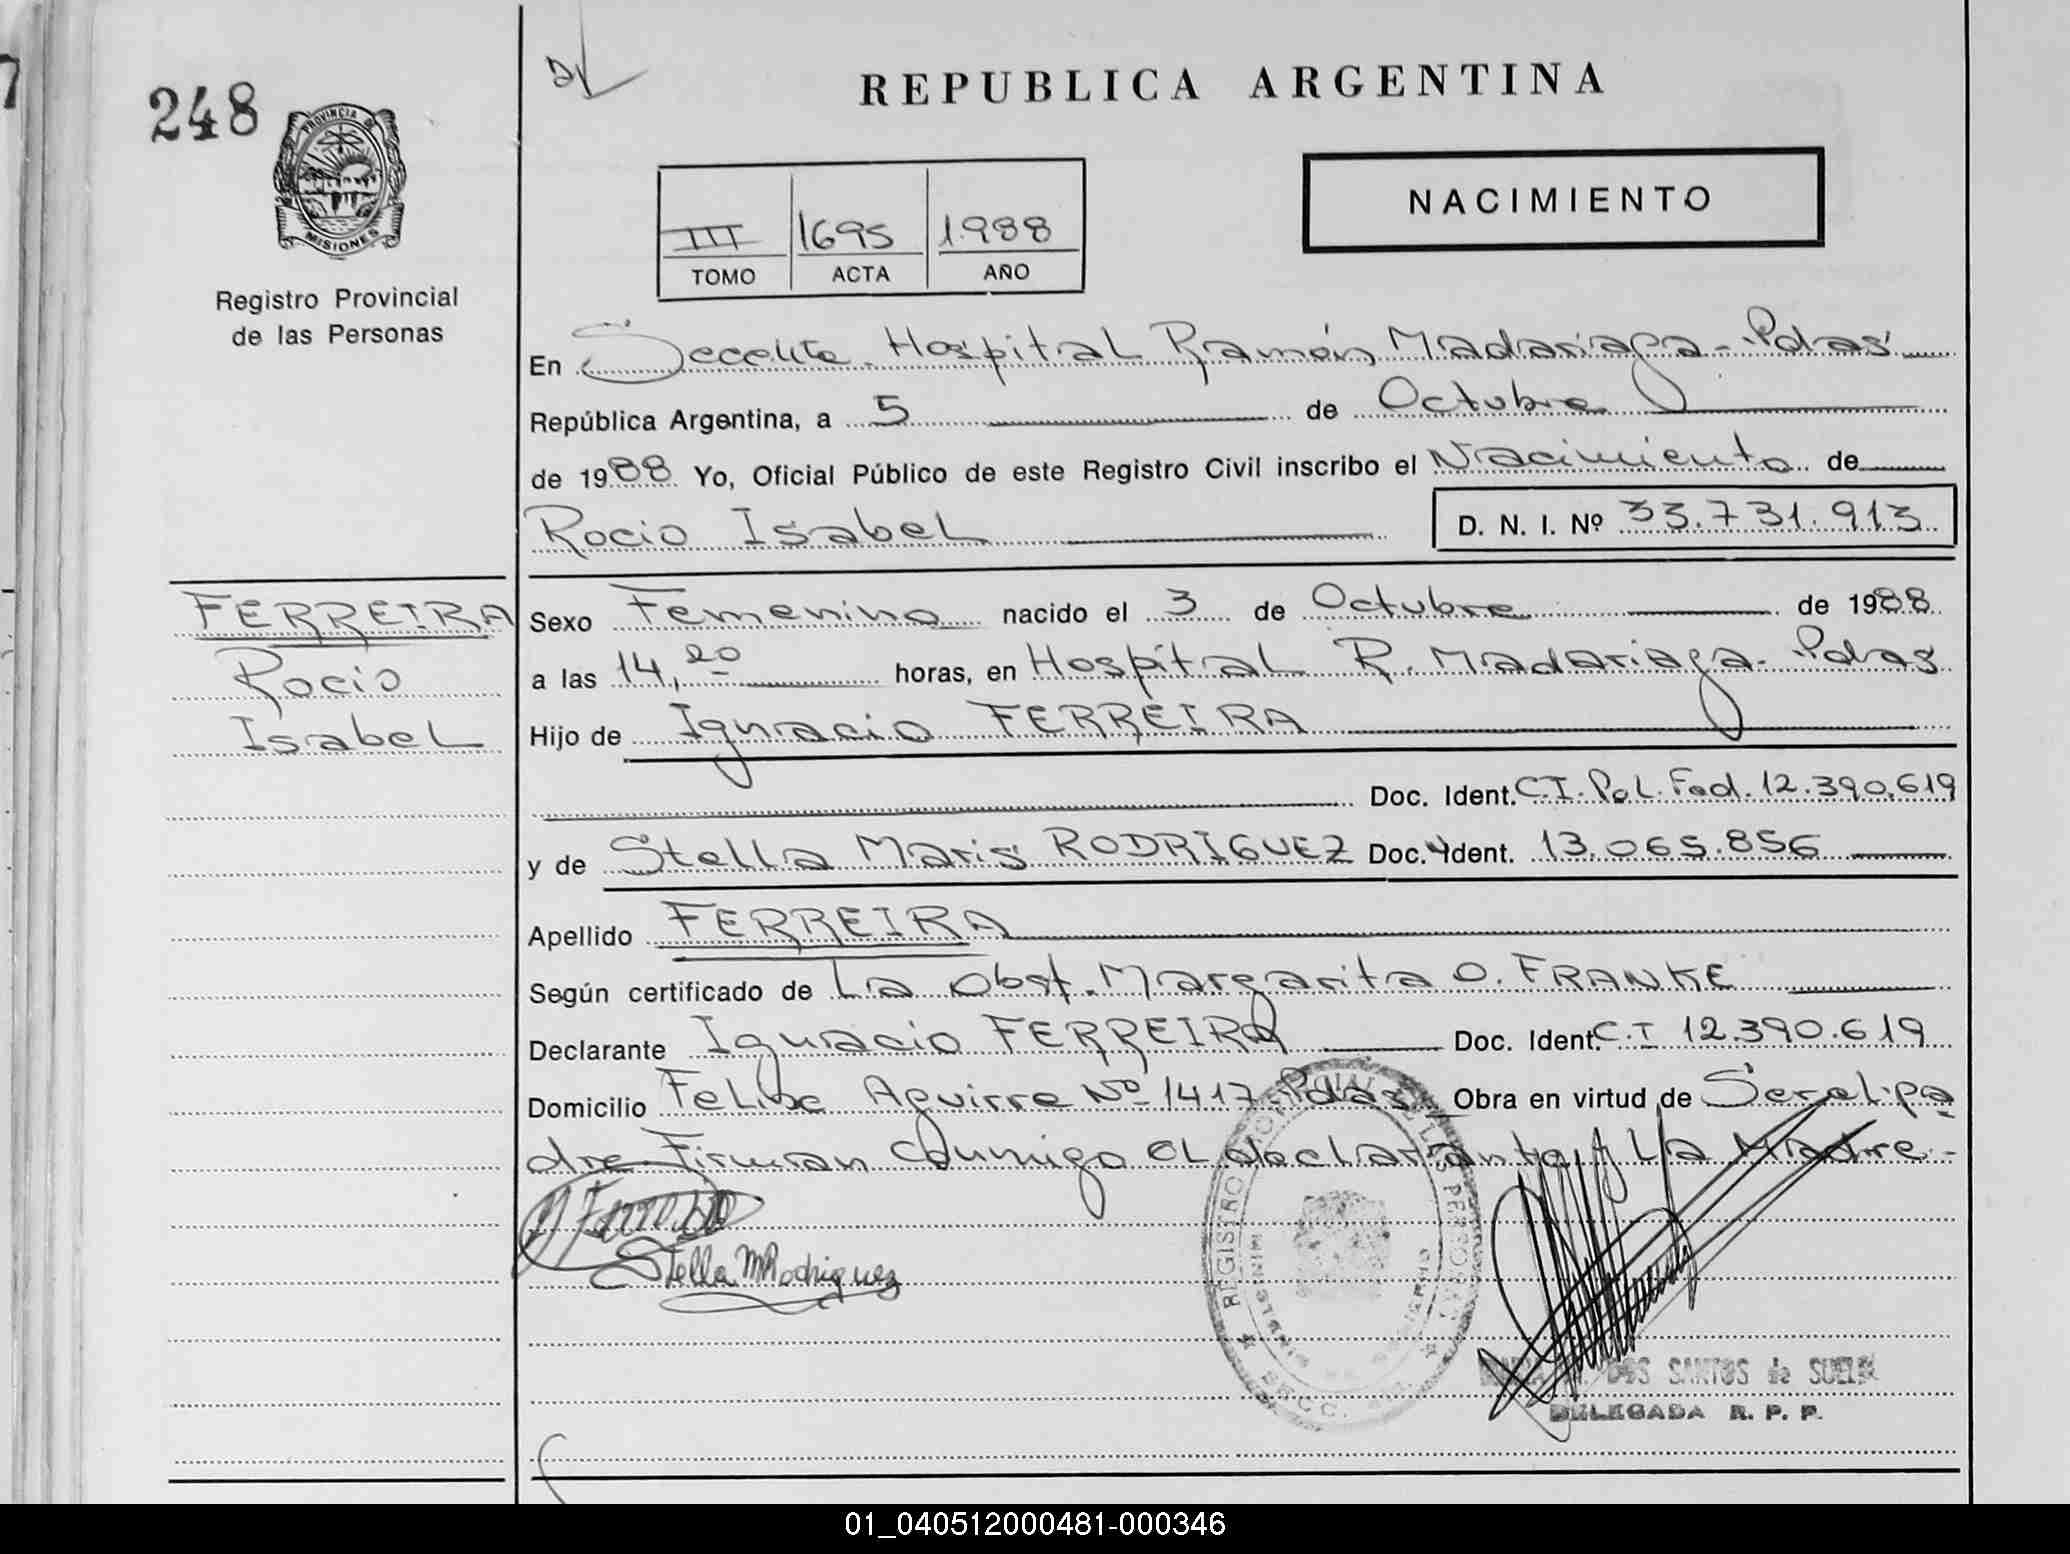 248
REPUBLICA ARGENTINA
PROVINCIA DE
MISIONES
Registro Provincial
de las Personas
III 1695 1.988
TOMO ACTA AÑO
NACIMIENTO
En Seccelite. Hospital Ramón Madariaga - Pdas
República Argentina, a 5 de Octubre
de 1988 Yo, Oficial Público de este Registro Civil inscribo el Nacimiento de
Rocio Isabel D. N. I. Nº 33.731.913
FERREIRA
Rocio
Isabel
Sexo Femenino nacido el 3 de Octubre de 1988
a las 14,20 horas, en Hospital R. Madariaga - Pdas
Hijo de Ignacio FERREIRA
Doc. Ident. C.I. Pol. Fed. 12.390.619
y de Stella Maris RODRIGUEZ Doc. Ident. 13.065.856
Apellido FERREIRA
Según certificado de La Obst. Margarita O. FRANKE
Declarante Ignacio FERREIRA Doc. Ident. C.I 12.390.619
Domicilio Felipe Aguirre Nº 1417 - Pdas Obra en virtud de Ser el pa
dre Firman conmigo el declarante y La Madre -
Stella M Rodriguez
DOS SANTOS de
DELEGADA R. P. P.
01_040512000481-000346